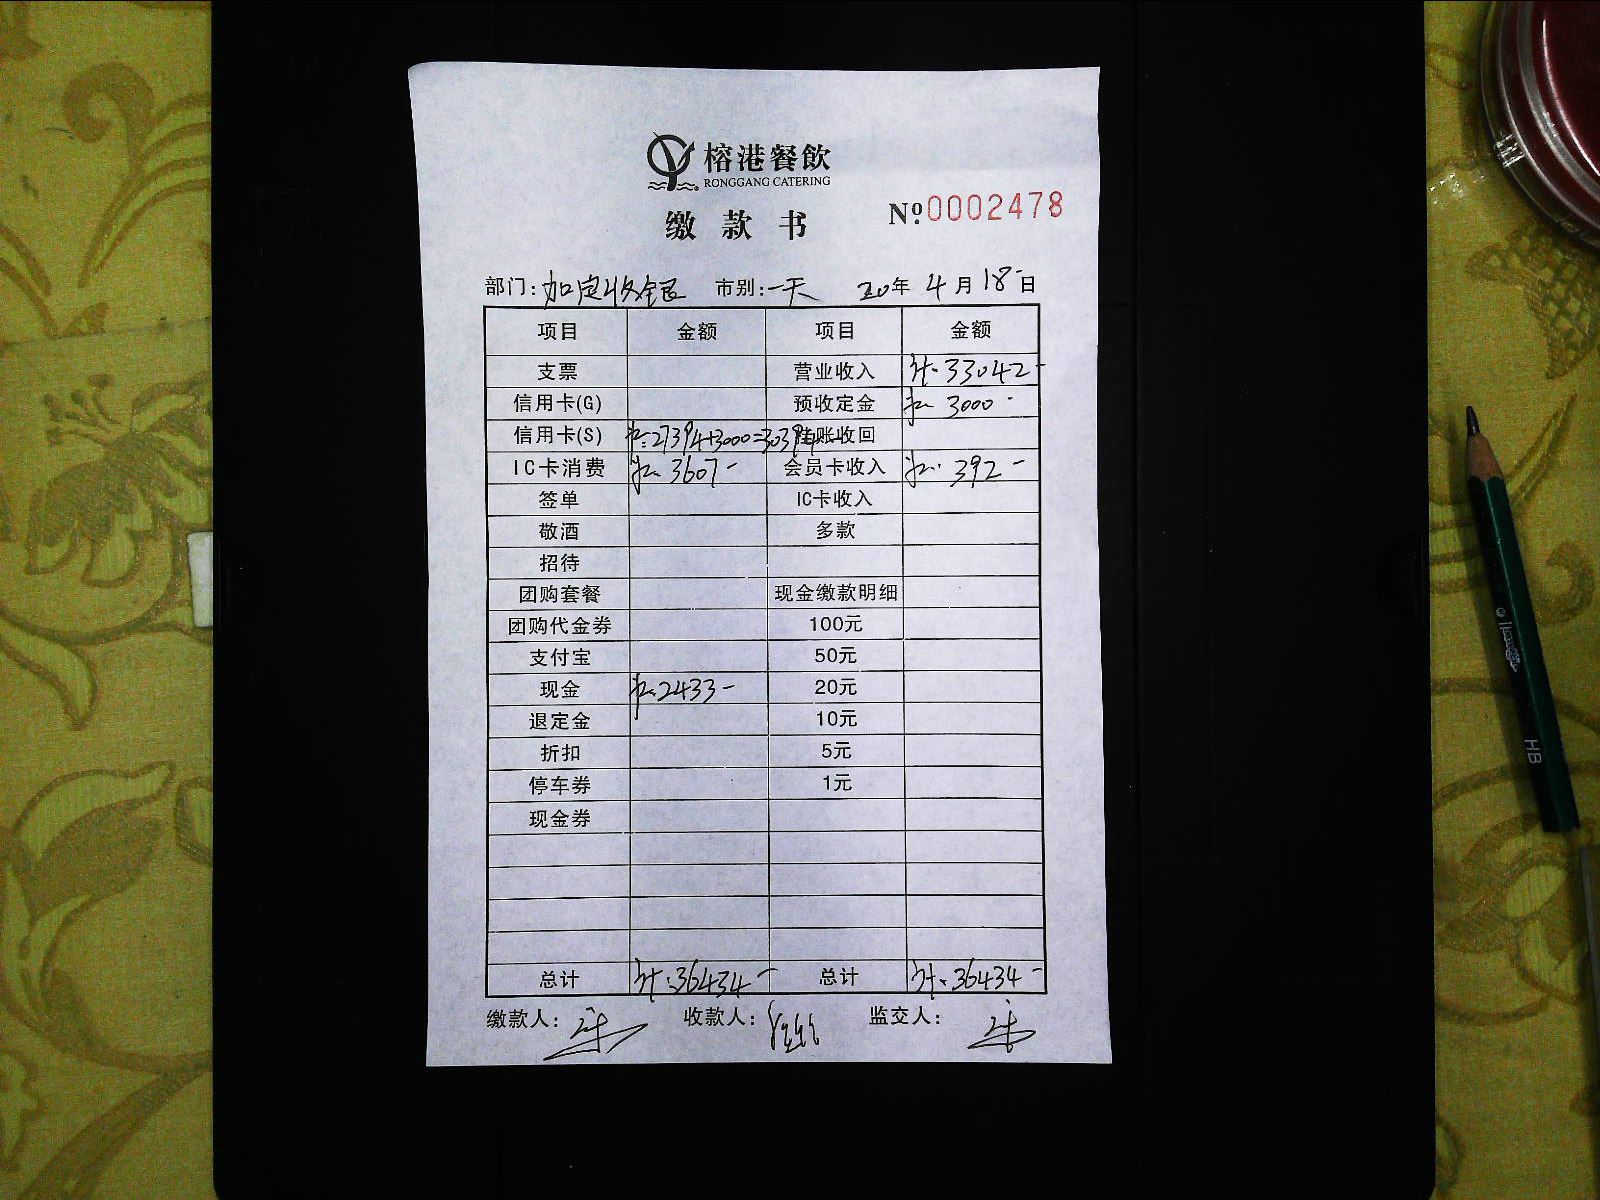 榕港餐飲
RONGGANG CATERING
缴款书 Nº.0002478
部门:加定收银 市别:一天 20年 4月 18日
项目 金额 项目 金额
支票 营业收入 计:33042-
信用卡(G) 预收定金 3000-
信用卡(S) 27394+3000=30394- 挂账收回
IC卡消费 3607- 会员卡收入 392-
签单 IC卡收入
敬酒 多款
招待
团购套餐 现金缴款明细
团购代金券 100元
支付宝 50元
现金 2433- 20元
退定金 10元
折扣 5元
停车券 1元
现金券
总计 计:36434- 总计 计:36434-
缴款人: 收款人: 监交人:
HB